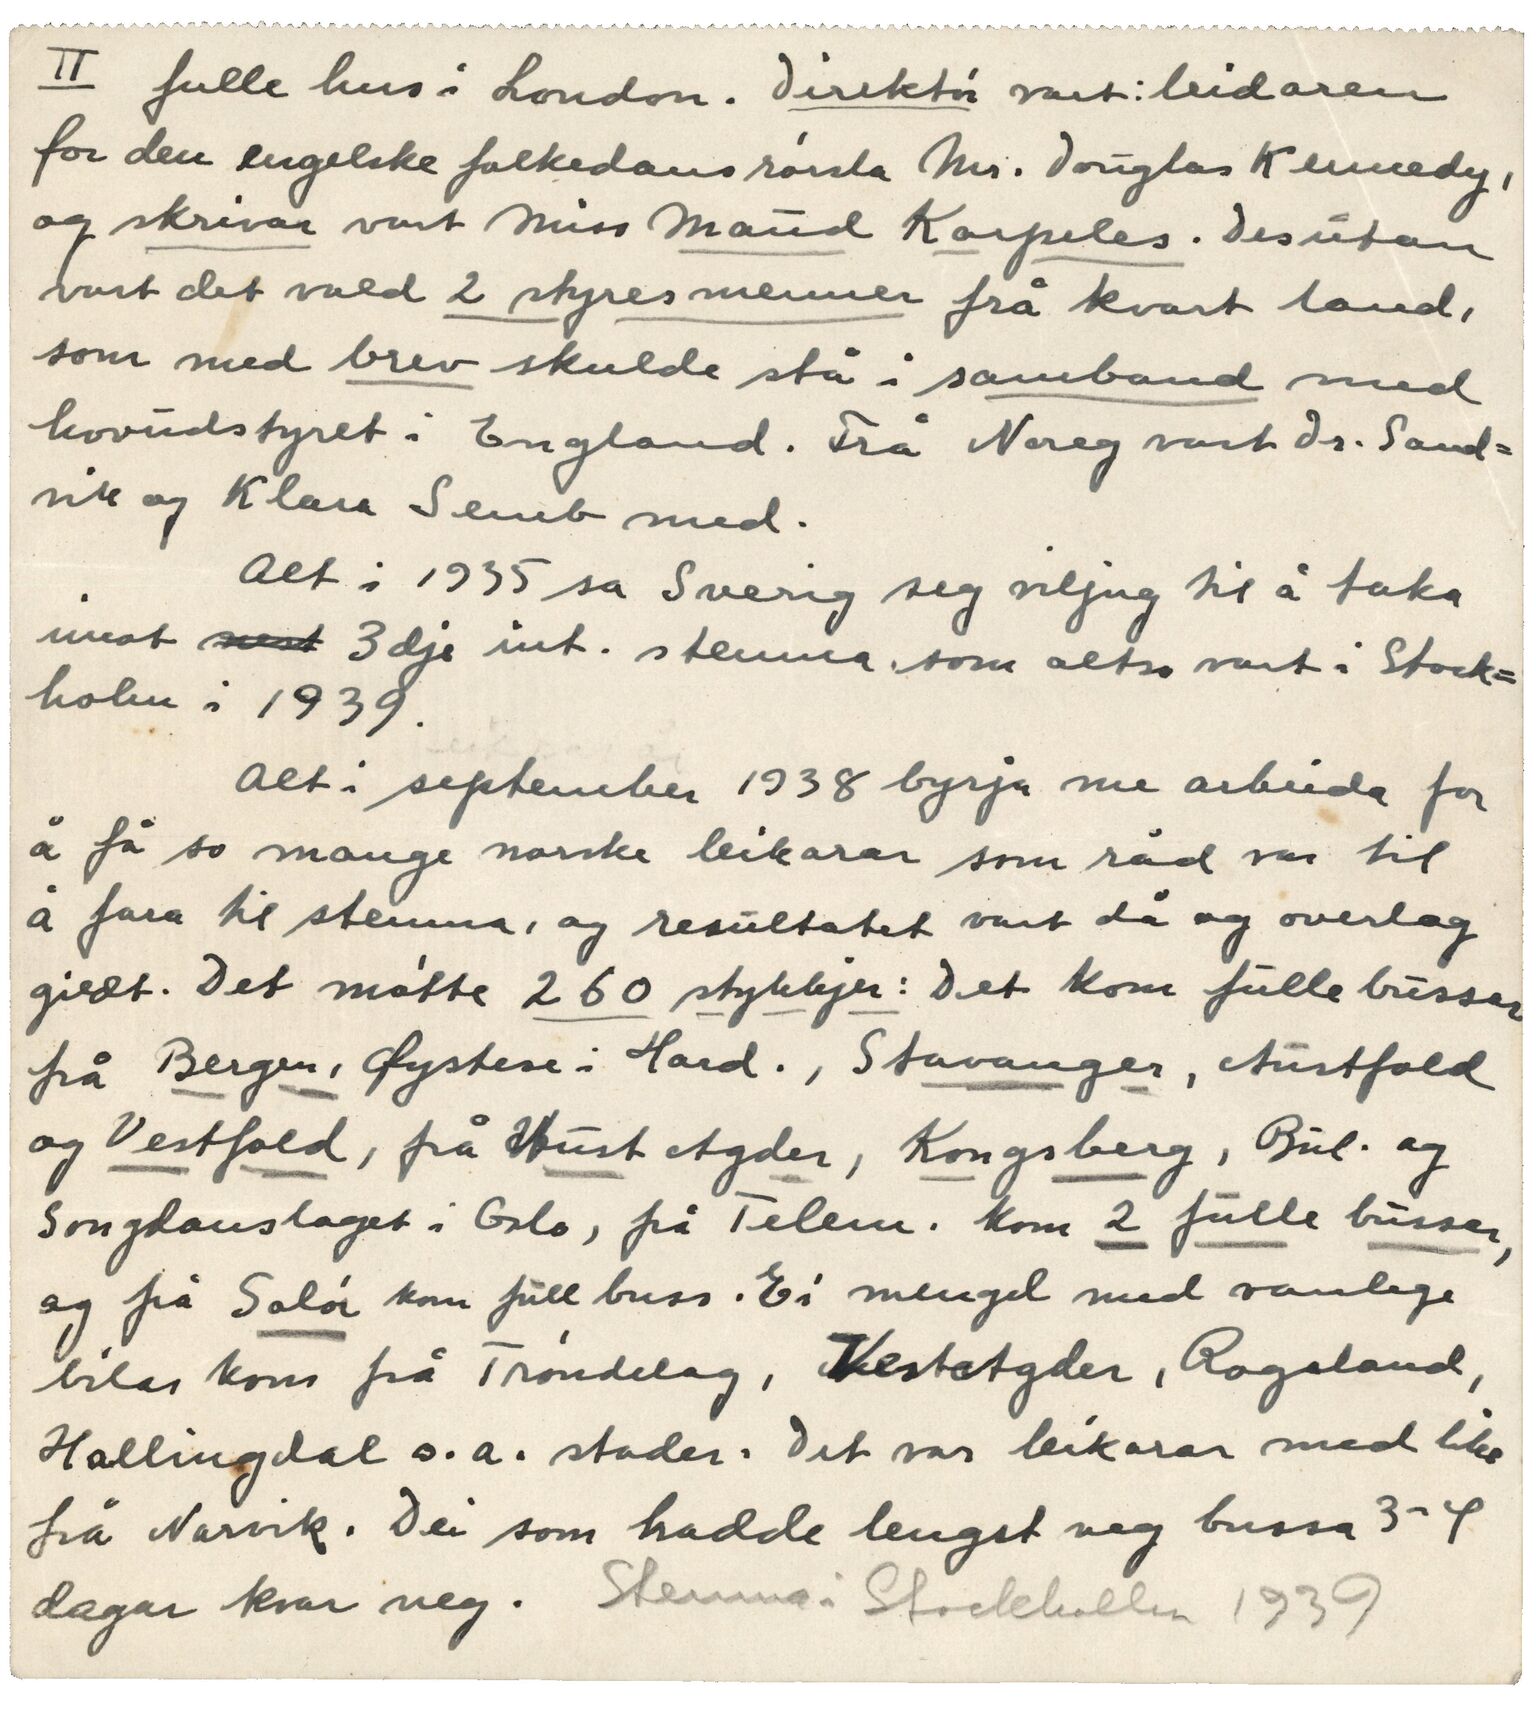 II fulle hus i London. Direktór vart: leidaren
for den engelske folkedansrórsla Mr. Douglas Kennedy,
og skrivar vart Miss Maud Karpeles. Desutan
vart det vald 2 styresmenner frå kvart land,
som med brev skulde stå i samband med
hovudstyret i England. Frå Noreg vart Dr. Sand=
vik og Klara Semb med.
Alt i 1935 sa Sverig seg viljug til å taka
imot 3dje int. stemna, som altso vart i Stock=
holm i 1939.
Alt i september 1938 byrja me arbeida for
å få so mange norske leikarar som råd var til
å fara til stemna, og resultatet vart då og overlag
gildt. Det mótte 260 stykkjer: Det kom fulle bussar
frå Bergen, Øystese i Hard., Stavanger, Austfold
og Vestfold, frå Aust Agder, Kongsberg, Bul. og
Songdanslaget i Oslo, frå Telem. kom 2 fulle bussar,
og frå Solór kom full buss. Ei mengd med vanlege
bilar kom frå Tróndelag, Vest Agder, Rogaland,
Hallingdal o.a. stader. Det var leikarar med like
frå Narvik. Dei som hadde lengst veg bussa 3-4
dagar kvar veg. Stemna i Stockhollm 1939